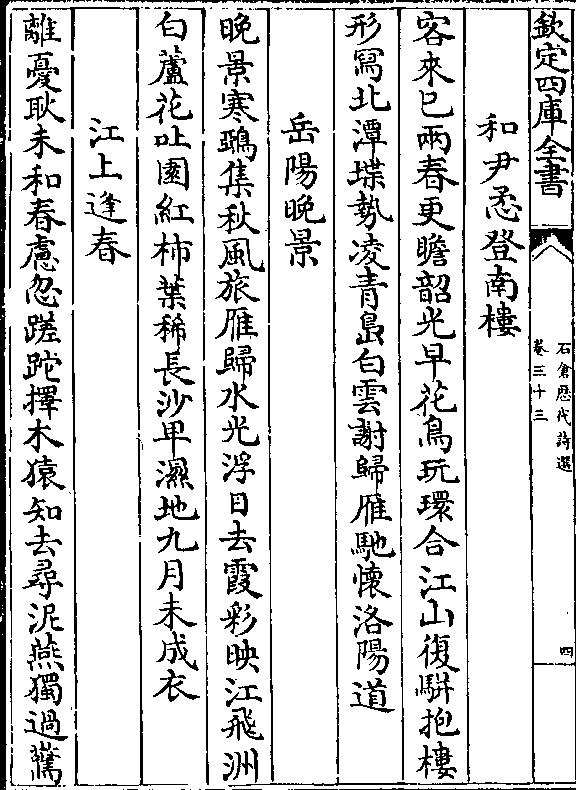 欽定四庫全書
石倉歷代詩選
卷三十三
四
和尹懋登南樓
客來已兩春更瞻韶光早花鳥玩環合江山復駢抱樓
形寫北潭堞勢凌青島白雲謝歸雁馳懷洛陽道
岳陽晩景
晚景寒鵶集秋風旅雁歸水光浮日去霞彩映江飛洲
白蘆花吐園紅柿葉稀長沙卑濕地九月未成衣
江上逢春
離憂耿未和春慮忽蹉跎擇木猿知去尋泥燕獨過鶯